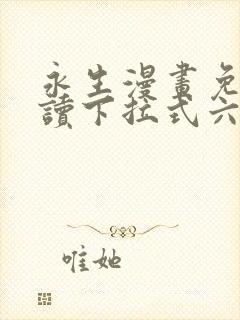 永生漫畫免
讀下拉式六
唯她